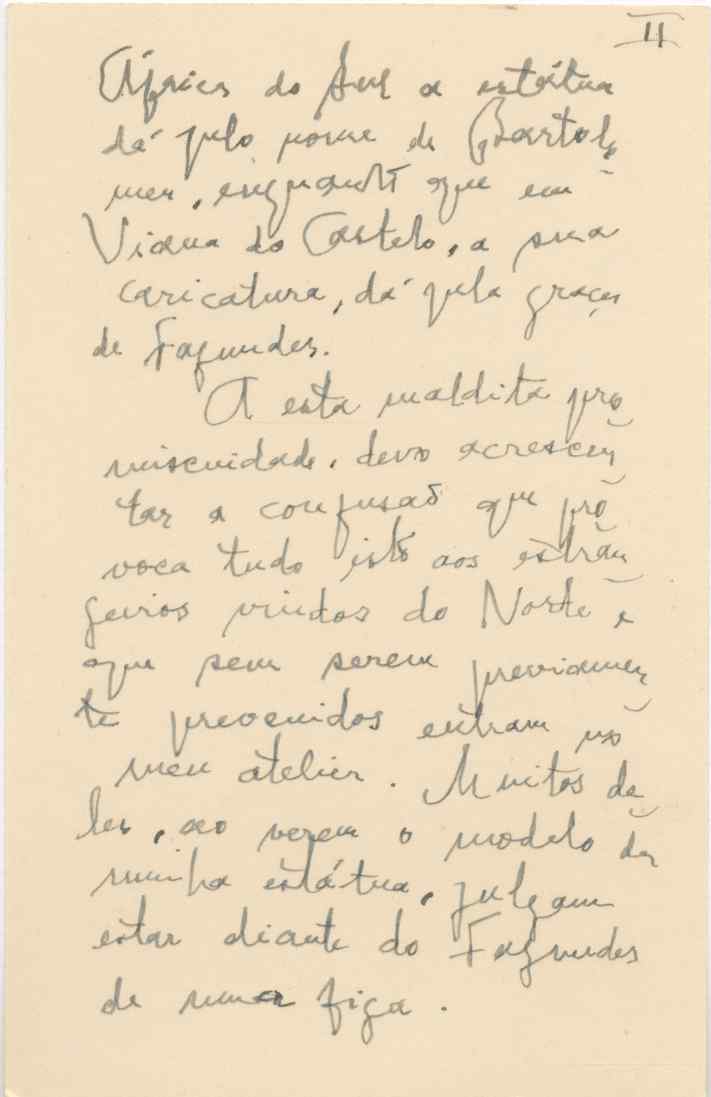 II
África do Sul a estátua
dá pelo nome de Bartolo
meu, enquanto que em
Viana do Castelo, a sua
caricatura, dá pela graça
de Fagundes.
A esta maldita pro
miscuidade, devo acrescen
tar a confusão que pro
voca tudo isto aos estran
geiros vindos do Norte e
que sem serem previamen
te prevenidos entram no
meu atelier. Muitos de
les, ao verem o modelo da
minha estátua, julgam
estar diante do Fagundes
de uma figa.